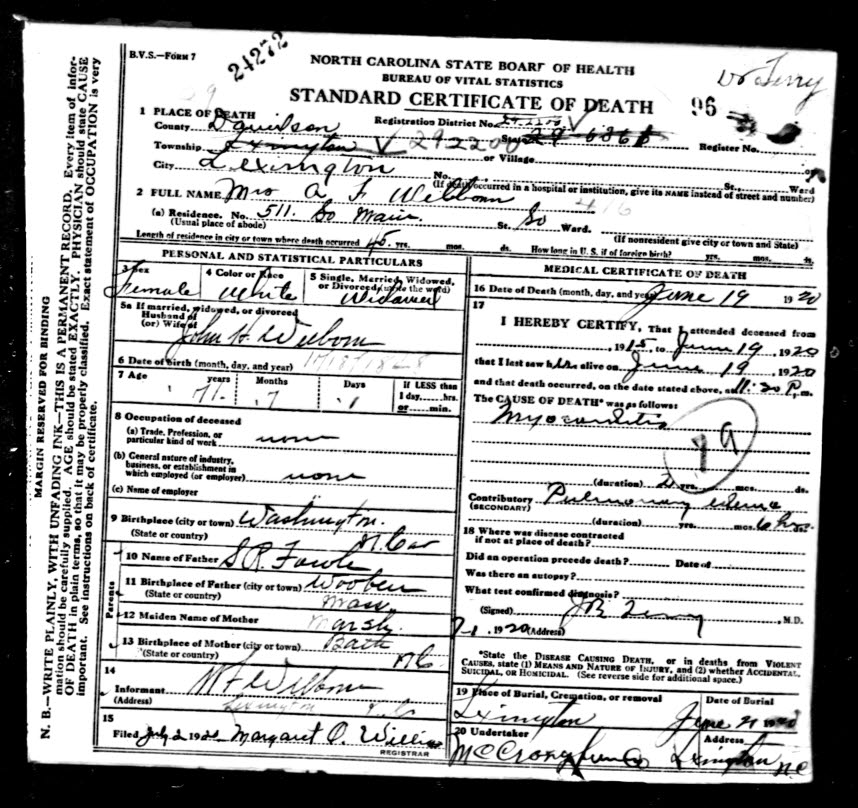 B.V.S.—FORM 7
24272
NORTH CAROLINA STATE BOARD OF HEALTH
BUREAU OF VITAL STATISTICS
STANDARD CERTIFICATE OF DEATH
Dr Terry
96
1 PLACE OF DEATH
Registration District No.
County Davidson
Register No.
Township Lexington 292200 or Village
City Lexington No. St., Ward
(If death occurred in a hospital or institution, give its NAME instead of street and number)
2 FULL NAME Mrs A F Welborn 416
(a) Residence. No. 511. So Main. St. So Ward.
(Usual place of abode) (If nonresident give city or town and State)
Length of residence in city or town where death occurred 45 yrs. mos. ds. How long in U. S. if of foreign birth? yrs. mos. ds.
PERSONAL AND STATISTICAL PARTICULARS
3 Sex Female
4 Color or Race White
5 Single, Married, Widowed, or Divorced (write the word) Widowed
5a If married, widowed, or divorced
Husband of
(or) Wife of John H Welborn
6 Date of birth (month, day, and year) 10/18/1848
7 Age years 71 Months 7 Days 1 If LESS than 1 day......hrs. or......min.
8 Occupation of deceased
(a) Trade, Profession, or particular kind of work none
(b) General nature of industry, business, or establishment in which employed (or employer) none
(c) Name of employer
9 Birthplace (city or town) Washington.
(State or country) N. Car
Parents
10 Name of Father S R Fowle
11 Birthplace of Father (city or town) Woburn
(State or country) Mass
12 Maiden Name of Mother Marsh
13 Birthplace of Mother (city or town) Bath
(State or country) N C
14
Informant W F Welborn
(Address) Lexington N.C.
15
Filed July 2 1920 Margaret O. Willis
REGISTRAR
MEDICAL CERTIFICATE OF DEATH
16 Date of Death (month, day, and year) June 19 1920
17
I HEREBY CERTIFY, That I attended deceased from
1915, to June 19, 1920
that I last saw her alive on June 19, 1920
and that death occurred, on the date stated above, at 11:20 P. m.
The CAUSE OF DEATH* was as follows:
Myocarditis
79
(duration) 2 yrs. mos. ds.
Contributory Pulmonary edema
(SECONDARY)
(duration) yrs. mos. 6 hrs.
18 Where was disease contracted
if not at place of death?
Did an operation precede death? Date of
Was there an autopsy?
What test confirmed diagnosis?
(Signed) J R Terry, M.D.
7-1, 1920 (Address)
*State the DISEASE CAUSING DEATH, or in deaths from VIOLENT CAUSES, state (1) MEANS AND NATURE OF INJURY, and (2) whether ACCIDENTAL, SUICIDAL, or HOMICIDAL. (See reverse side for additional space.)
19 Place of Burial, Cremation, or removal Lexington
Date of Burial June 21 1920
20 Undertaker
Address Lexington N.C.
MARGIN RESERVED FOR BINDING
N. B.—WRITE PLAINLY, WITH UNFADING INK—THIS IS A PERMANENT RECORD. Every item of information should be carefully supplied. AGE should be stated EXACTLY. PHYSICIAN should state CAUSE OF DEATH in plain terms, so that it may be properly classified. Exact statement of OCCUPATION is very important. See instructions on back of certificate.